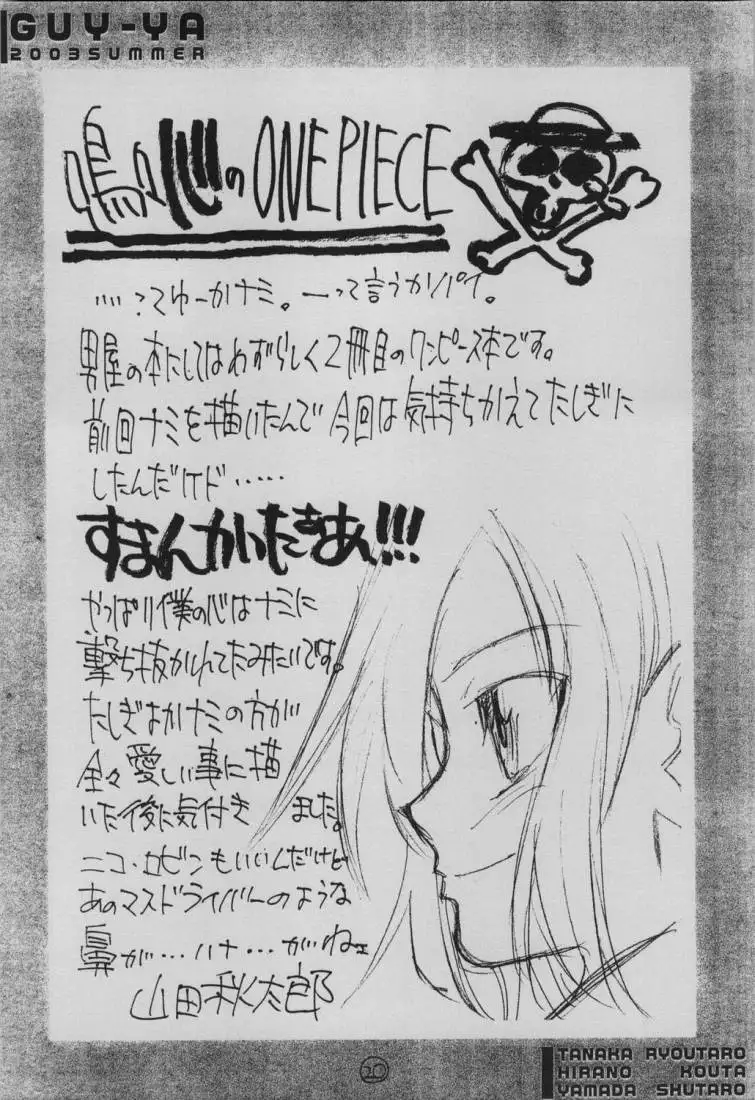 GUY-YA
2003 SUMMER
のONE PIECE
‥‥?てゆーかナミ。
男屋の本にしてはめずらしく2冊目のワンピース本です。
前回ナミを描いたんで今回は気持ちかえてたしぎに
したんだけド……
すまんかいたさあん!!!
やっぱり僕の心はナミに
撃ち抜かれてたみたいです。
たしぎよかナミの方が
全々愛しい事に描
いた後に気付き ました。
ニコ・ロビンもいいんだけど
あのマスドライバーのような
鼻が…ハナ…がねェ
山田秋太郎
20
TANAKA RYOUTARO
HIRANO KOUTA
YAMADA SHUTARO